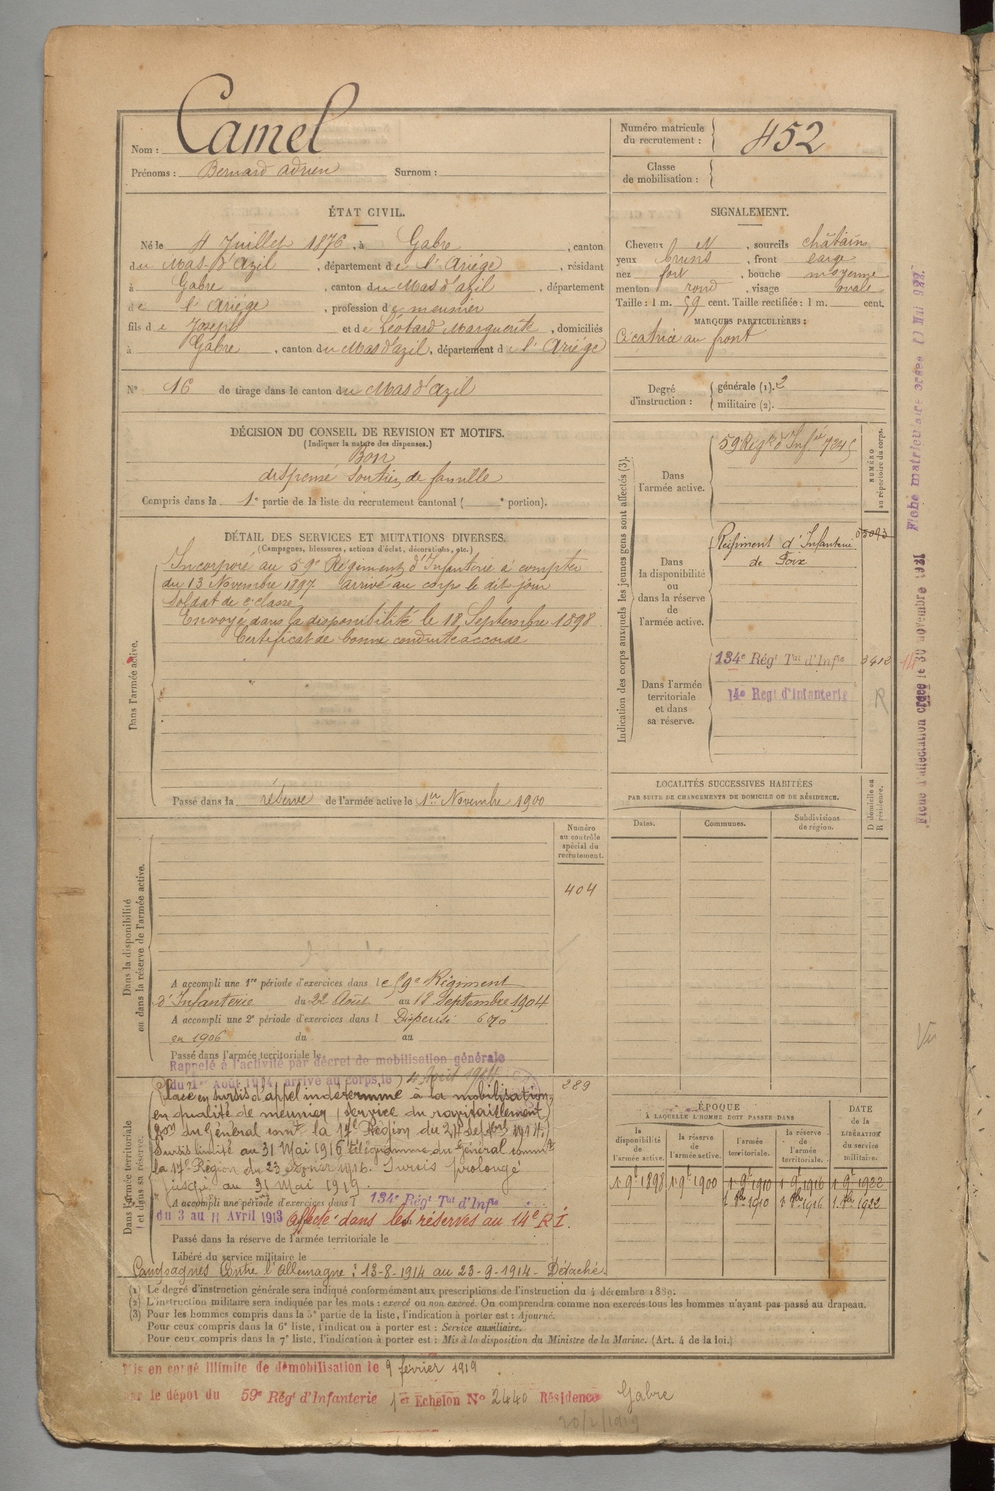 Nom : Camel
Prénoms : Bernard Adrien Surnom :
Numéro matricule du recrutement : 452
Classe de mobilisation :
ÉTAT CIVIL.
Né le 4 Juillet 1876, à Gabre, canton
du Mas-d'Azil, département de l'Ariège, résidant
à Gabre, canton du Mas d'azil, département
de l'Ariége, profession de meunier
fils de Joseph et de Léotard Marguerite, domiciliés
à Gabre, canton du Mas d'azil, département de l'Ariège
SIGNALEMENT.
Cheveux N, sourcils châtain
yeux bruns, front large
nez fort, bouche moyenne
menton rond, visage ovale
Taille : 1 m. 59 cent. Taille rectifiée : 1 m. cent.
MARQUES PARTICULIÈRES :
Cicatrice au front
N° 16 de tirage dans le canton du Mas d'Azil
Degré d'instruction : générale (1). 2
militaire (2).
DÉCISION DU CONSEIL DE REVISION ET MOTIFS.
(Indiquer la nature des dispenses.)
Bon
dispensé soutien de famille
Compris dans la 1e partie de la liste du recrutement cantonal ( e portion).
DÉTAIL DES SERVICES ET MUTATIONS DIVERSES.
(Campagnes, blessures, actions d'éclat, décorations, etc.)
Dans l'armée active.
Incorporé au 59e Régiment d'Infanterie à compter
du 13 Novembre 1897 arrivé au corps le dit jour
soldat de 2e classe
Envoyé dans la disponibilité le 18 Septembre 1898
Certificat de bonne conduite accordé
Passé dans la réserve de l'armée active le 1er Novembre 1900
Indication des corps auxquels les jeunes gens sont affectés (3).
NUMÉRO au répertoire du corps.
Dans l'armée active.
59 Régt d'Infie
Dans la disponibilité ou dans la réserve de l'armée active.
Régiment d'Infanterie
de Foix
Dans l'armée territoriale et dans sa réserve.
134e Régt Tal d'Infie 3412
14e Régt d'Infanterie
LOCALITÉS SUCCESSIVES HABITÉES
PAR SUITE DE CHANGEMENTS DE DOMICILE OU DE RÉSIDENCE.
Dates. Communes. Subdivisions de région. D domicile ou R résidence.
Numéro au contrôle spécial du recrutement.
404
Dans la disponibilité ou dans la réserve de l'armée active.
A accompli une 1re période d'exercices dans le 59e Régiment
d'Infanterie du 22 Août au 18 Septembre 1904
A accompli une 2e période d'exercices dans l Dispensé 6 %
en 1906 du au
Passé dans l'armée territoriale le
Rappelé à l'activité par décret de mobilisation générale
du 1er Août 1914 arrivé au corps le 4 Août 1914
289
Dans l'armée territoriale et dans sa réserve.
Placé en sursis d'appel indéterminé à la mobilisation
en qualité de meunier (service du ravitaillement)
du Général comt la 17e Région du 24 sepbre 1914.
Sursis limité au 31 Mai 1916 Télégramme du Général commt
la 17e Région du 23 1916. Sursis prolongé
jusqu'au 31 Mai 1919.
A accompli une période d'exercices dans l 134e Régt Tal d'Infie
du 3 au 11 Avril 1913 affecté dans les réserves au 14e R.I.
Passé dans la réserve de l'armée territoriale le
Libéré du service militaire le
Campagnes contre l'Allemagne : 13-8-1914 au 23-9-1914 - Détaché
ÉPOQUE
À LAQUELLE L'HOMME DOIT PASSER DANS
la disponibilité de l'armée active. la réserve de l'armée active. l'armée territoriale. la réserve de l'armée territoriale. DATE de la LIBÉRATION du service militaire.
1 9e 1898 1 9e 1900 1 9e 1910 1 9e 1916 1 9e 1922
1 8bre 1910 1 8bre 1916 1 8bre 1922
(1) Le degré d'instruction générale sera indiqué conformément aux prescriptions de l'instruction du 4 décembre 1889.
(2) L'instruction militaire sera indiquée par les mots : exercé ou non exercé. On comprendra comme non exercés tous les hommes n'ayant pas passé au drapeau.
(3) Pour les hommes compris dans la 5e partie de la liste, l'indication à porter est : Ajourné.
Pour ceux compris dans la 6e liste, l'indicat on à porter est : Service auxiliaire.
Pour ceux compris dans la 7e liste, l'indication à porter est : Mis à la disposition du Ministre de la Marine. (Art. 4 de la loi.)
is en congé illimité de démobilisation le 9 février 1919
r le dépôt du 59e Régt d'Infanterie 1er Echelon No 2440 Résidence Gabre
20/2/1919
Fiche d'affectation créée le 30 novembre 19
Fiche matriculaire créée